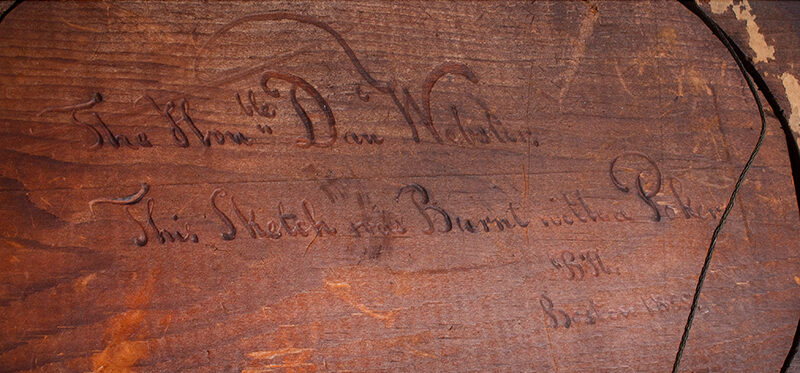 The Honble Danl Webster.
This Sketch was Burnt with a Poker
Boston